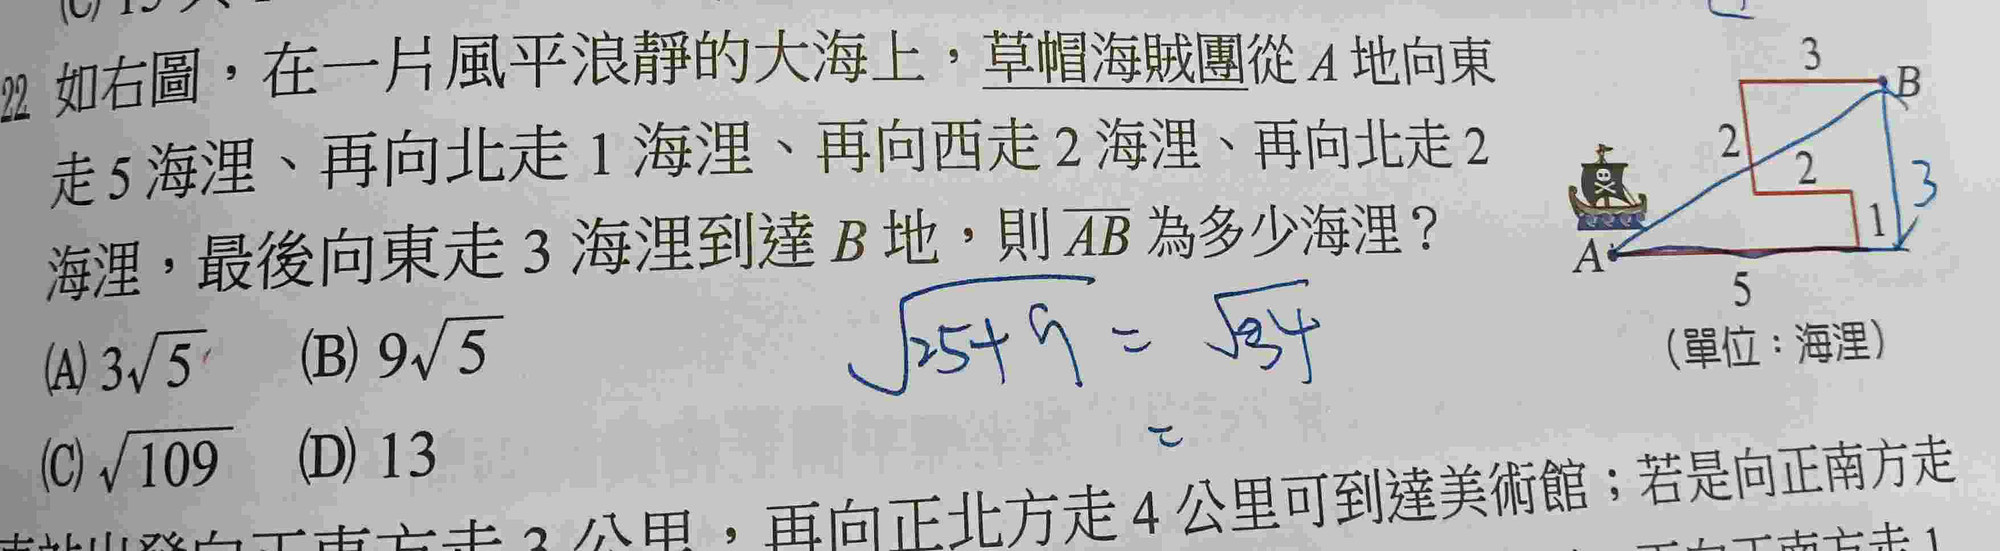 22 如右圖，在一片風平浪靜的大海上，草帽海賊團從 A 地向東
走 5 海浬、再向北走 1 海浬、再向西走 2 海浬、再向北走 2
海浬，最後向東走 3 海浬到達 B 地，則 AB 為多少海浬？
(A) 3√5 (B) 9√5
(C) √109 (D) 13
√25+9 = √34
=
3
B
2
2
3
1
A
5
(單位：海浬)
公里，再向正北方走 4 公里可到達美術館；若是向正南方走